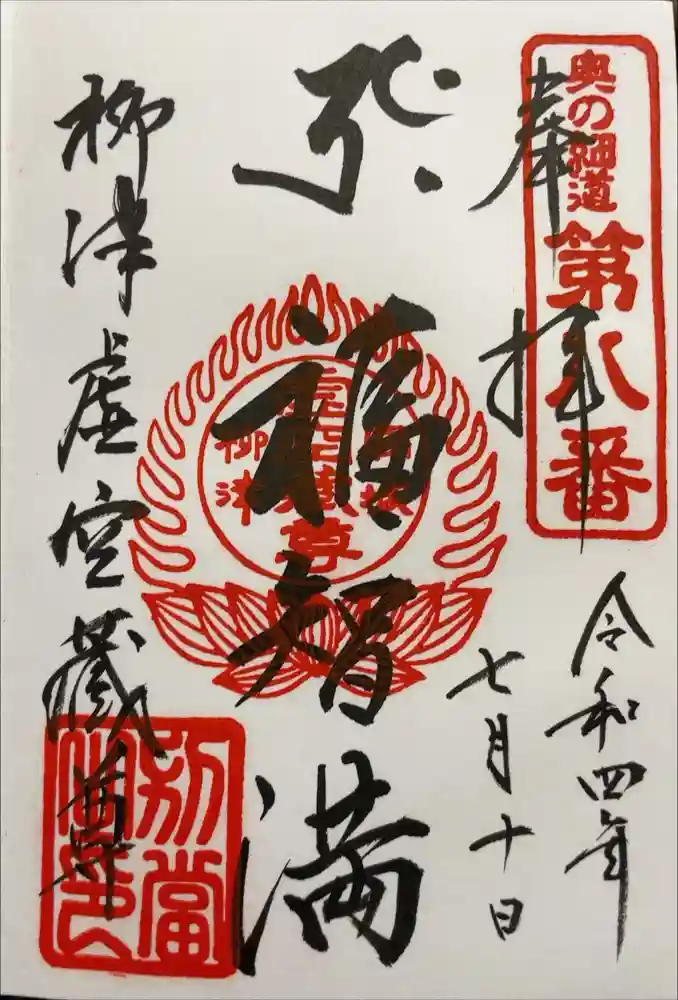 奉拝
奥の細道
第八番
令和四年
七月十日
福智満
柳津
尊
柳津虚空蔵尊
別當